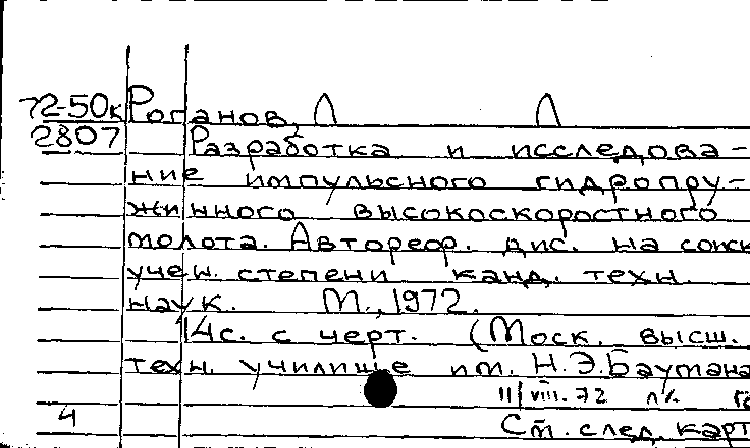 72-50к Роганов, Л Л
2807 Разработка и исследова-
ние импульсного гидропру-
жинного высокоскоростного
молота. Автореф. дис. на соиск
учен. степени канд. техн.
наук. М., 1972.
14с. с черт. (Моск. высш.
техн. училище им. Н.Э.Баумана
11/VIII-72
4
См. след. карт